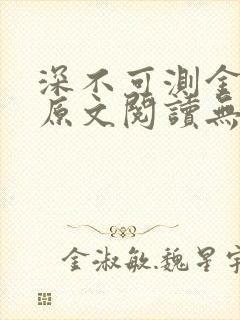 深不可測金
原文閱讀無
金淑敏.魏星宇